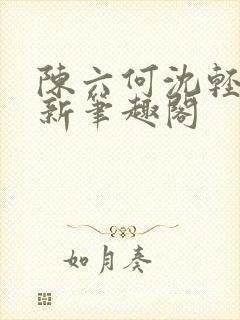 陳六何沈輕
新筆趣閣
如月奏